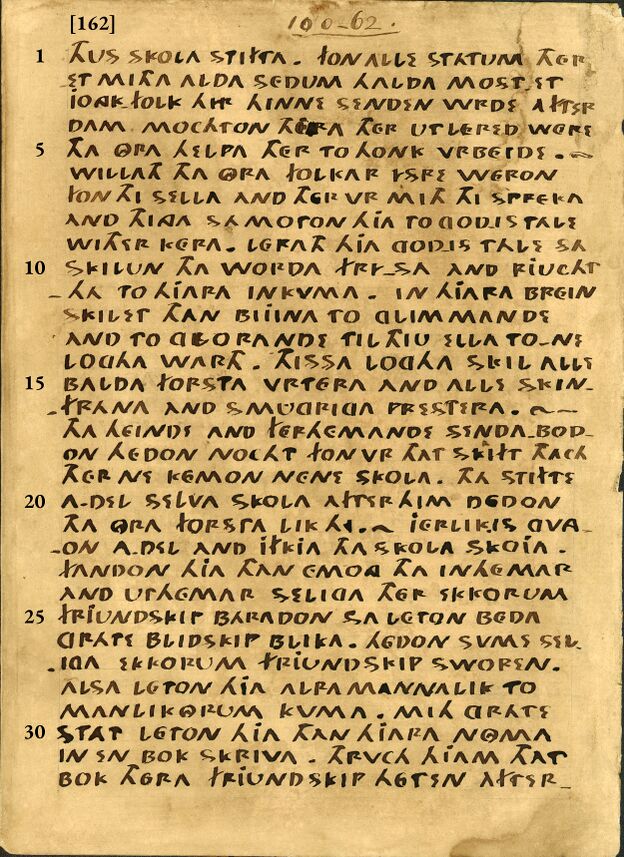 [162]
100-62.
1 THUS SKOLA STIFTA. FON ALLE STATUM THER
ET MITHA ALDA SEDUM HALDA MOST.ET
IOGK FOLK HIR HINNE SENDEN WRDE AFTER
DAM MOCHTON THERA THER UTLERED WERE
5 THA ORA HELPA THER TO HONK VRBEIDE. ~
WILLATH THA ORA FOLKAR YSRE WERON
FON THI SELLA AND THER VR MITH THI SPREKA
AND THIGA SA MOTON HIA TO GODIS TALE
WITHER KERA. LERATH HIA GODIS TALE SA
10 SKILUN THA WORDA FRY-SA AND RIUCHT
-HA TO HIARA INKVMA. IN HIARA BREIN
SKILET THAN BIJINA TO GLIMMANDE
AND TO GLORANDE TIL THIU ELLA TO-NE
LOGHA WARTH. THISSA LOGHA SKIL ALLE
15 BALDA FORSTA VRTERA AND ALLE SKIN-
-FRANA AND SMUGRIGA PRESTERA. ~
THA HEINDE AND FERHEMANDE SENDA-BOD-
ON HEDON NOCHT FON VR THAT SKIFT THACH
THER NE KEMON NENE SKOLA. THA STIFTE
20 A-DEL SELVA SKOLA AFTER HIM DEDON
THA ORA FORSTA LIK HI. ~ IERLIKIS GVA-
-ON A.DEL AND IFKIA THA SKOLA SKOIA.
FANDON HIA THAN EMOG THA INHEMAR
AND UTHEMAR SELIGA THER EKKORUM
25 FRIUNDSKIP BARADON SA LETON BEDA
GRATE BLIDSKIP BLIKA. HEDON SVME SEL-
-IGA EKKORUM FRIUNDSKIP SWOREN.
ALSA LETON HIA ALRAMANNALIK TO
MANLIKORUM KUMA. MITH GRATE
30 STAT LETON HIA THAN HIARA NOMA
IN EN BOK SKRIVA. THRVCH HIAM THAT
BOK THERA FRIUNDSKIP HETEN AFTER-